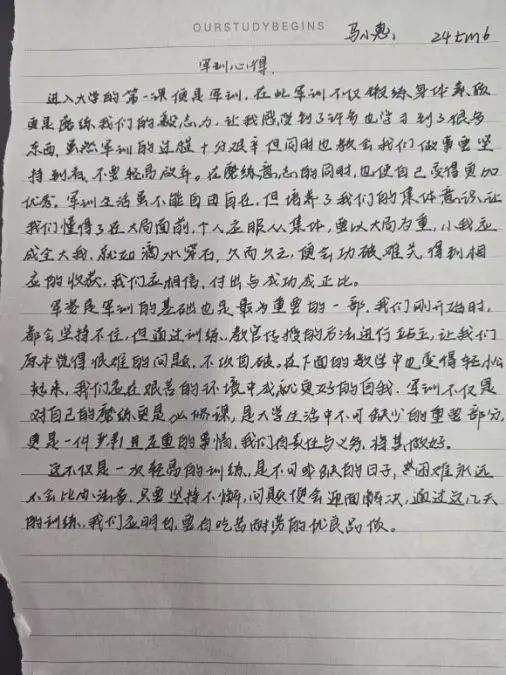 OURSTUDYBEGINS
马小惠 24tm6
军训心得
进入大学的第一课便是军训,在此军训不仅锻练身体素质
更是磨练我们的毅志力,让我感受到了许多也学习到了很多
东西,虽然军训的过程十分艰辛但同时也教会我们做事要坚
持到底,不要轻易放弃。在磨练意志的同时,也使自己变得更加
优秀,军训生活虽不能自由自在,但培养了我们的集体意识,让
我们懂得了在大局面前,个人应服从集体,要以大局为重,小我应
成全大我,就如滴水穿石,久而久之,便会功破难关,得到相
应的收获,我们应相信,付出与成功成正比。
军姿是军训的基础也是最为重要的一部,我们刚开始时,
都会坚持不住,但通过训练,教官传授的方法进行站立,让我们
原本觉得很难的问题,不攻自破。在下面的教学中也变得轻松
起来,我们应在艰苦的环境中成就更好的自我,军训不仅是
对自己的磨练更是必修课,是大学生活中不可缺少的重要部分,
更是一件光荣且庄重的事情,我们有责任与义务,将其做好。
这不仅是一次轻易的训练,是不可或缺的日子,困难永远
不会比办法多,只要坚持不懈,问题便会迎面解决,通过这几天
的训练,我们应明白,要有吃苦耐劳的优良品做。